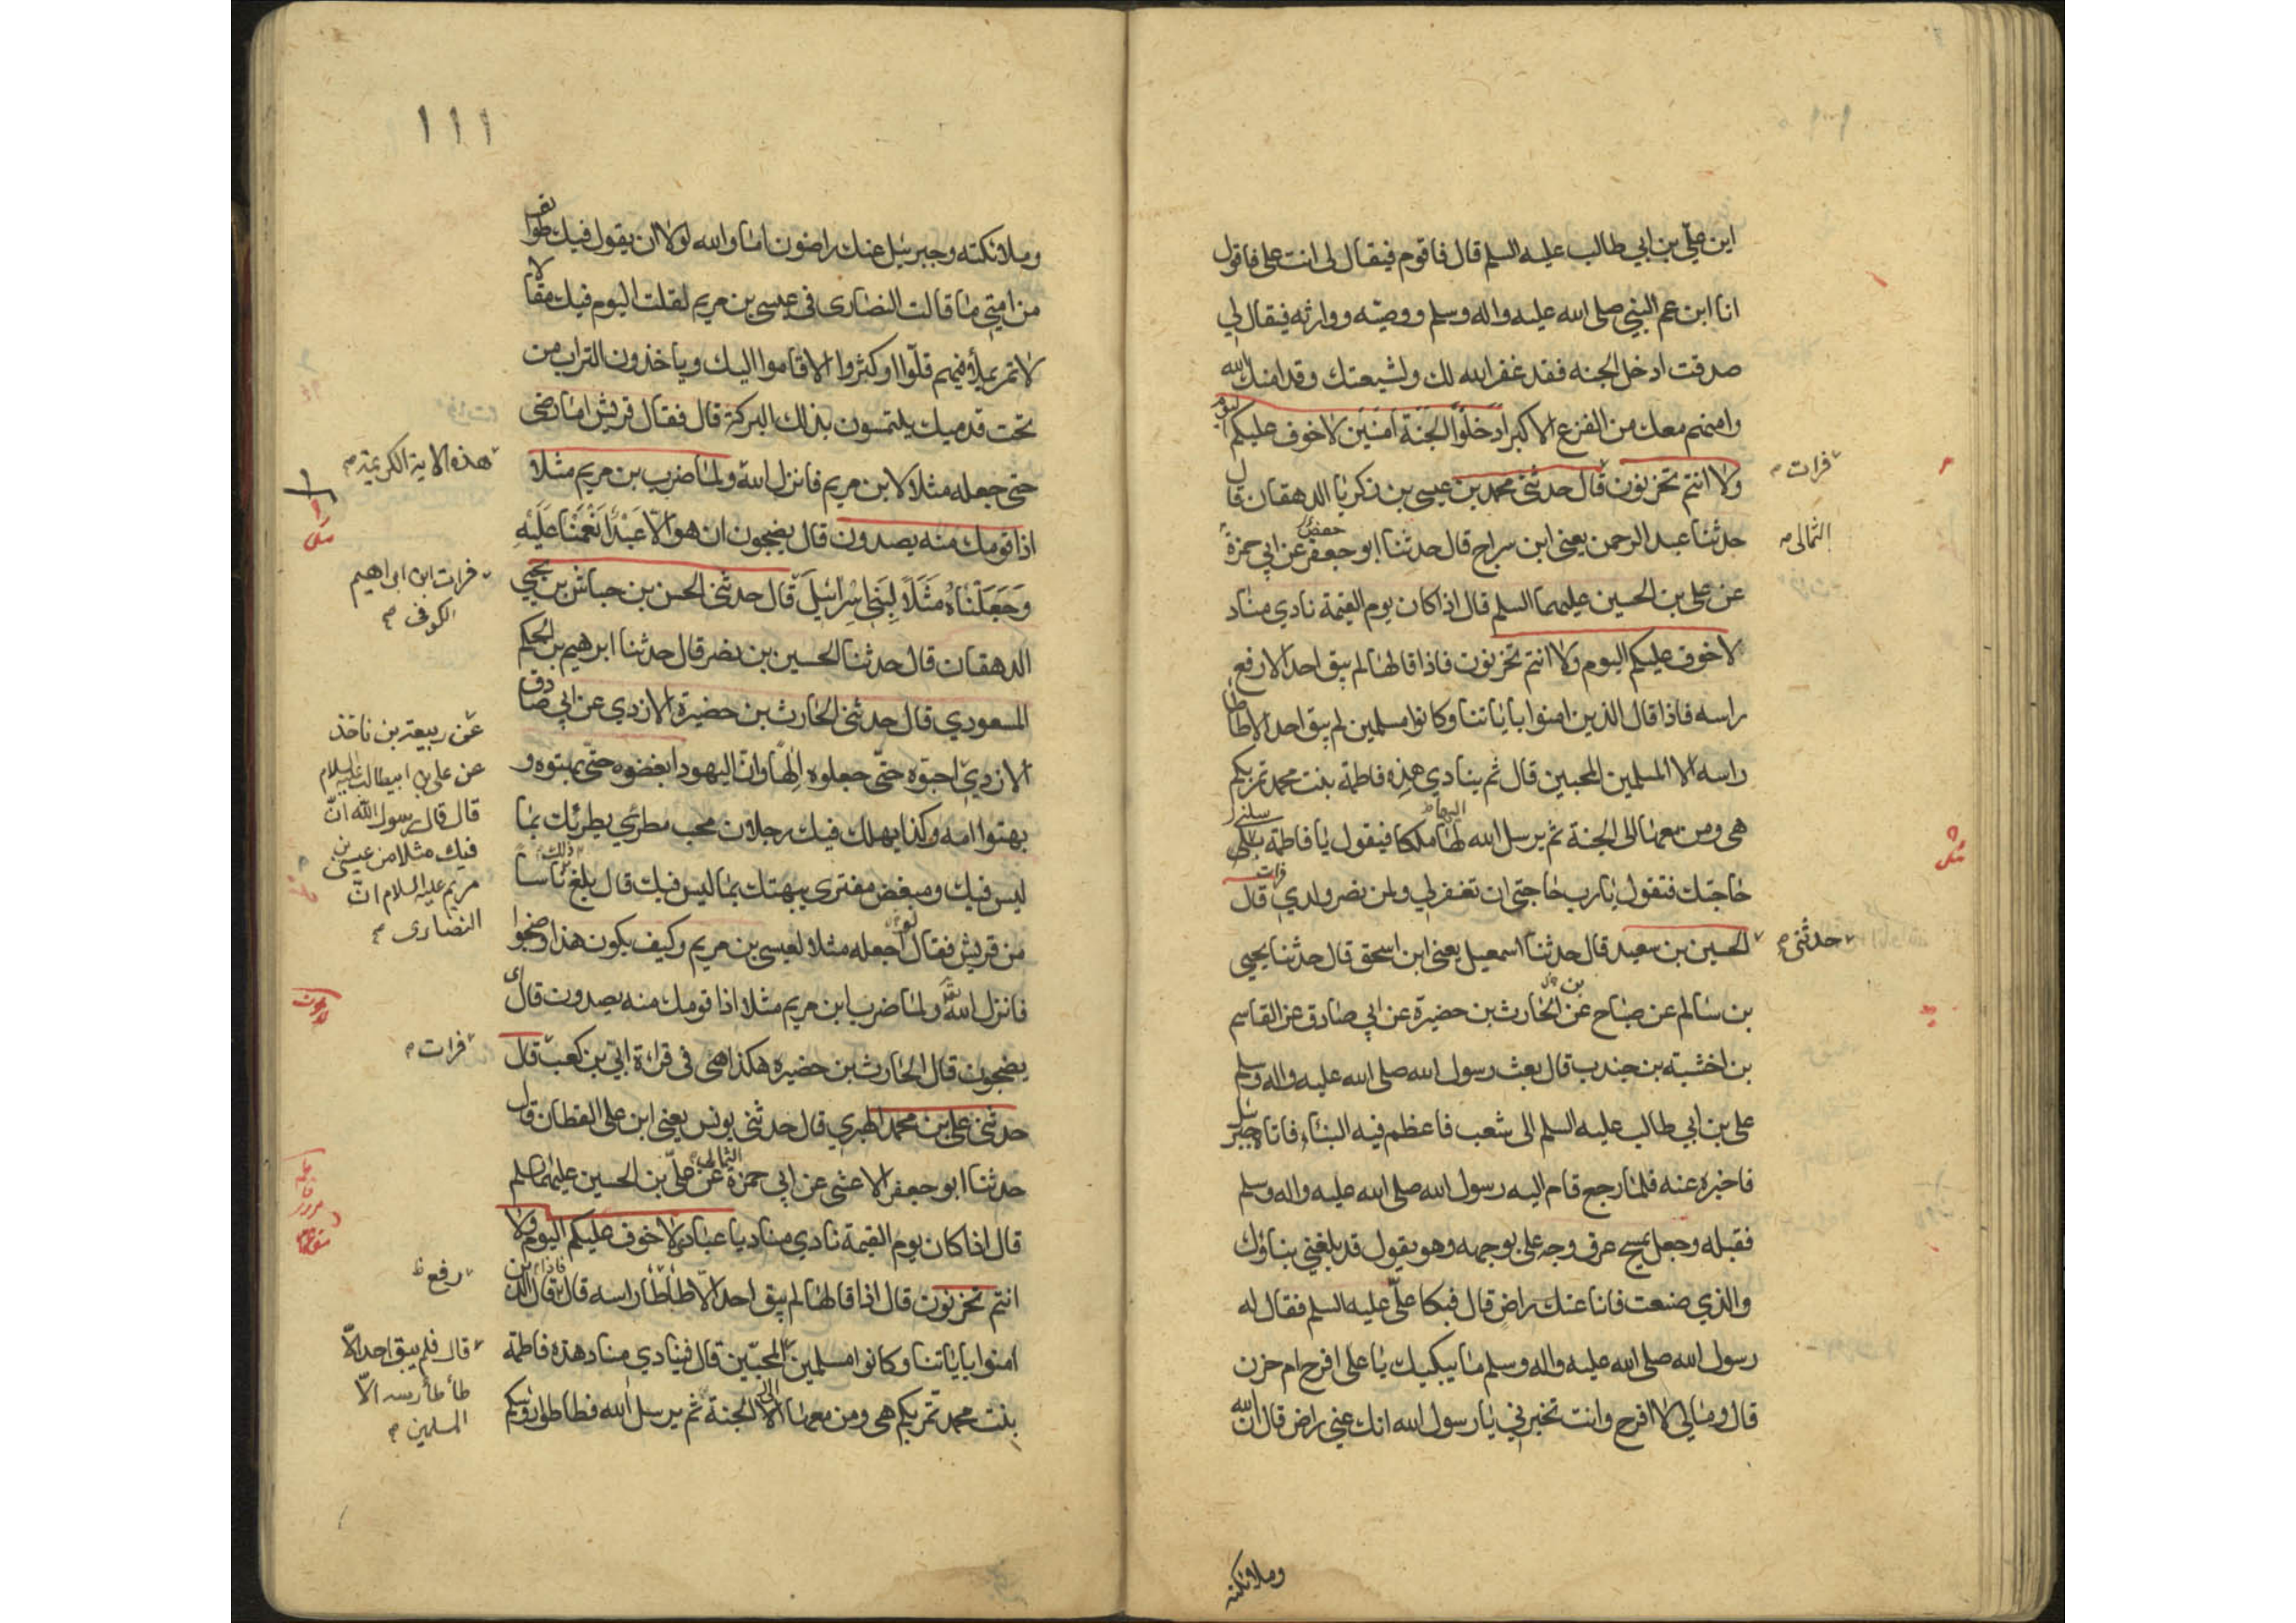 اين علي بن ابي طالب عليه السلم قال فاقوم فيقال لي انت علي فاقول
انا ابن عم النبي صلى الله عليه واله وسلم ووصيه ووارثه فيقال لي
صدقت ادخل الجنه فقد غفر الله لك ولشيعتك وقد امنك الله
وامنهم معك من الفزع الاكبر ادخلوا الجنة امنين لا خوف عليكم اليوم
ولا انتم تحزنون قال حدثنى محمد بن عيسى بن زكريا الدهقان قال
فرات
حدثنا عبد الرحمن يعنى ابن سراج قال حدثنا ابو جعفر عن ابي حمزة
حفص
الثمالى
عن علي بن الحسين عليهما السلم قال اذا كان يوم القيمة نادي مناد
لا خوف عليكم اليوم ولا انتم تحزنون فاذا قالها لم يبق احد الا رفع
راسه فاذا قال الذين امنوا باياتنا وكانوا مسلمين لم يبق احد الا طاطا
راسه الا المسلمين المحبين قال ثم ينادي هذه فاطمة بنت محمد تمر بكم
هي ومن معها الى الجنة ثم يرسل الله لها ملكا فيقول يا فاطمة سلي
اليها
حاجتك فتقول يا رب حاجتي ان تغفر لي ولمن نصر ولدي قال
فرات
الحسين بن سعيد قال حدثنا اسمعيل يعنى ابن اسحق قال حدثنا يحيى
حدثنى
بن سالم عن صباح عن الحارث بن حضيرة عن ابي صادق عن القاسم
بن
بن جندب قال بعث رسول الله صلى الله عليه واله وسلم
علي بن ابي طالب عليه السلم الى شعب فاعظم فيه البناء فاتاه جبرئيل
فاخبره عنه فلما رجع قام اليه رسول الله صلى الله عليه واله وسلم
فقبله وجعل يمسح عرق وجه علي بوجهه وهو يقول قد بلغني بناؤك
والذي صنعت فانا عنك راض قال فبكا علي عليه السلم فقال له
رسول الله صلى الله عليه واله وسلم ما يبكيك يا علي افرح ام حزن
قال ومالي لا افرح وانت تخبرني يا رسول الله انك عني راض قال ان الله
وملائكته
١١١
وملائكته وجبرئيل عنك راضون اما والله لولا ان يقول فيك طوائف
من امتي ما قالت النصارى في عيسى بن مريم لقلت اليوم فيك مقالا
لا تمر بملأ منهم قلوا او كثروا الا قاموا اليك وياخذون التراب من
تحت قدميك يلتمسون بذلك البركة قال فقال قريش اما رضى
حتى جعله مثلا لابن مريم فانزل الله ولما ضرب بن مريم مثلا
هذه الاية الكريمة
اذا قومك منه يصدون قال يضجون ان هو الا عبد انعمنا عليه
وجعلناه مثلا لبنى اسرائيل قال حدثنى الحسن بن حباش بن يحيى
فرات ابن ابراهيم
الكوفى
الدهقان قال حدثنا الحسين بن نصر قال حدثنا ابرهيم بن الحكم
المسعودي قال حدثنى الحارث بن حضيرة الازدي عن ابي صادق
الازدي احبوه حتى جعلوه الها وان اليهود ابغضوه حتى بهتوه و
عن ربيعة بن ناخذ
عن علي بن ابيطالب عليه السلام
قال قال رسول الله ان
فيك مثلا من عيسى بن
مريم عليه السلام ان
النصارى
بهتوا امه وكذا يهلك فيك رجلان محب مطرئ يطريك بما
ليس فيك ومبغض مفترى يبهتك بما ليس فيك قال بلغ ناسا
ذلك
من قريش فقال اجعله مثلا لعيسى بن مريم وكيف يكون هذا وضجوا
فانزل الله ولما ضرب ابن مريم مثلا اذا قومك منه يصدون قال اى
يضجون قال الحارث بن حضيره هكذا هى في قراءة ابي بن كعب قال
فرات
حدثنى علي بن محمد الزهري قال حدثنى يونس يعنى ابن علي القطان قال
حدثنا ابو جعفر الاعشى عن ابي حمزة عن علي بن الحسين عليهما السلم
الثمالى
قال اذا كان يوم القيمة نادي مناد يا عباد لا خوف عليكم اليوم ولا
انتم تحزنون قال اذا قالها لم يبق احد الا طاطا راسه قال فاذا قال الذين
رفع ظ
امنوا باياتنا وكانوا مسلمين المحبين قال فينادي مناد هذه فاطمة
قال فلم يبق احد الا
طأطأ رسه الا
المسلمين
بنت محمد تمر بكم هي ومن معها الى الجنة ثم يرسل الله فطاطوا رؤسكم